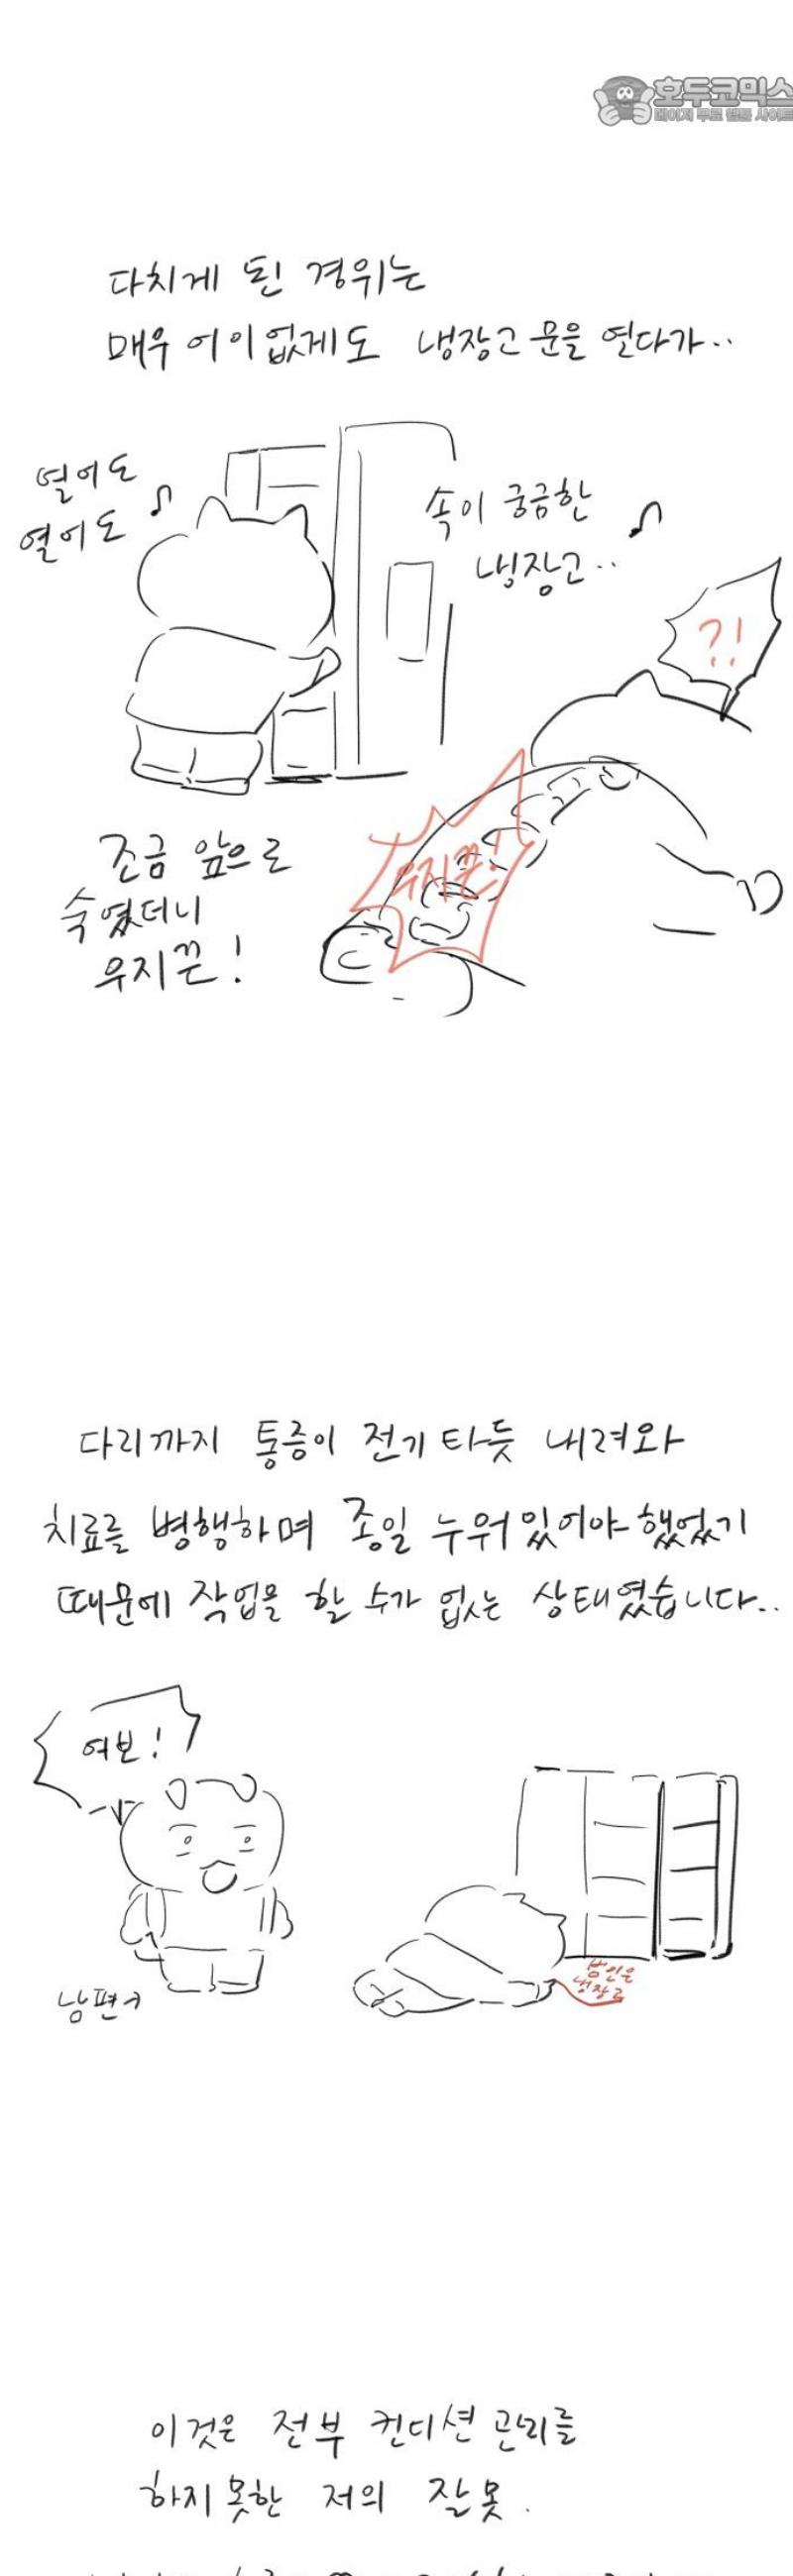 호두코믹스
페이지 무료 웹툰 사이트
다치게 된 경위는
매우 어이없게도 냉장고 문을 열다가..
열어도
열어도
속이 궁금한
냉장고..
?!
조금 앞으로
숙였더니
우지끈!
우지끈!
다리까지 통증이 전기 타듯 내려와
치료를 병행하며 종일 누워있어야 했었기
때문에 작업을 할 수가 없는 상태였습니다..
여보!
남편
범인은
냉장고
이것은 전부 컨디션 관리를
하지 못한 저의 잘못.